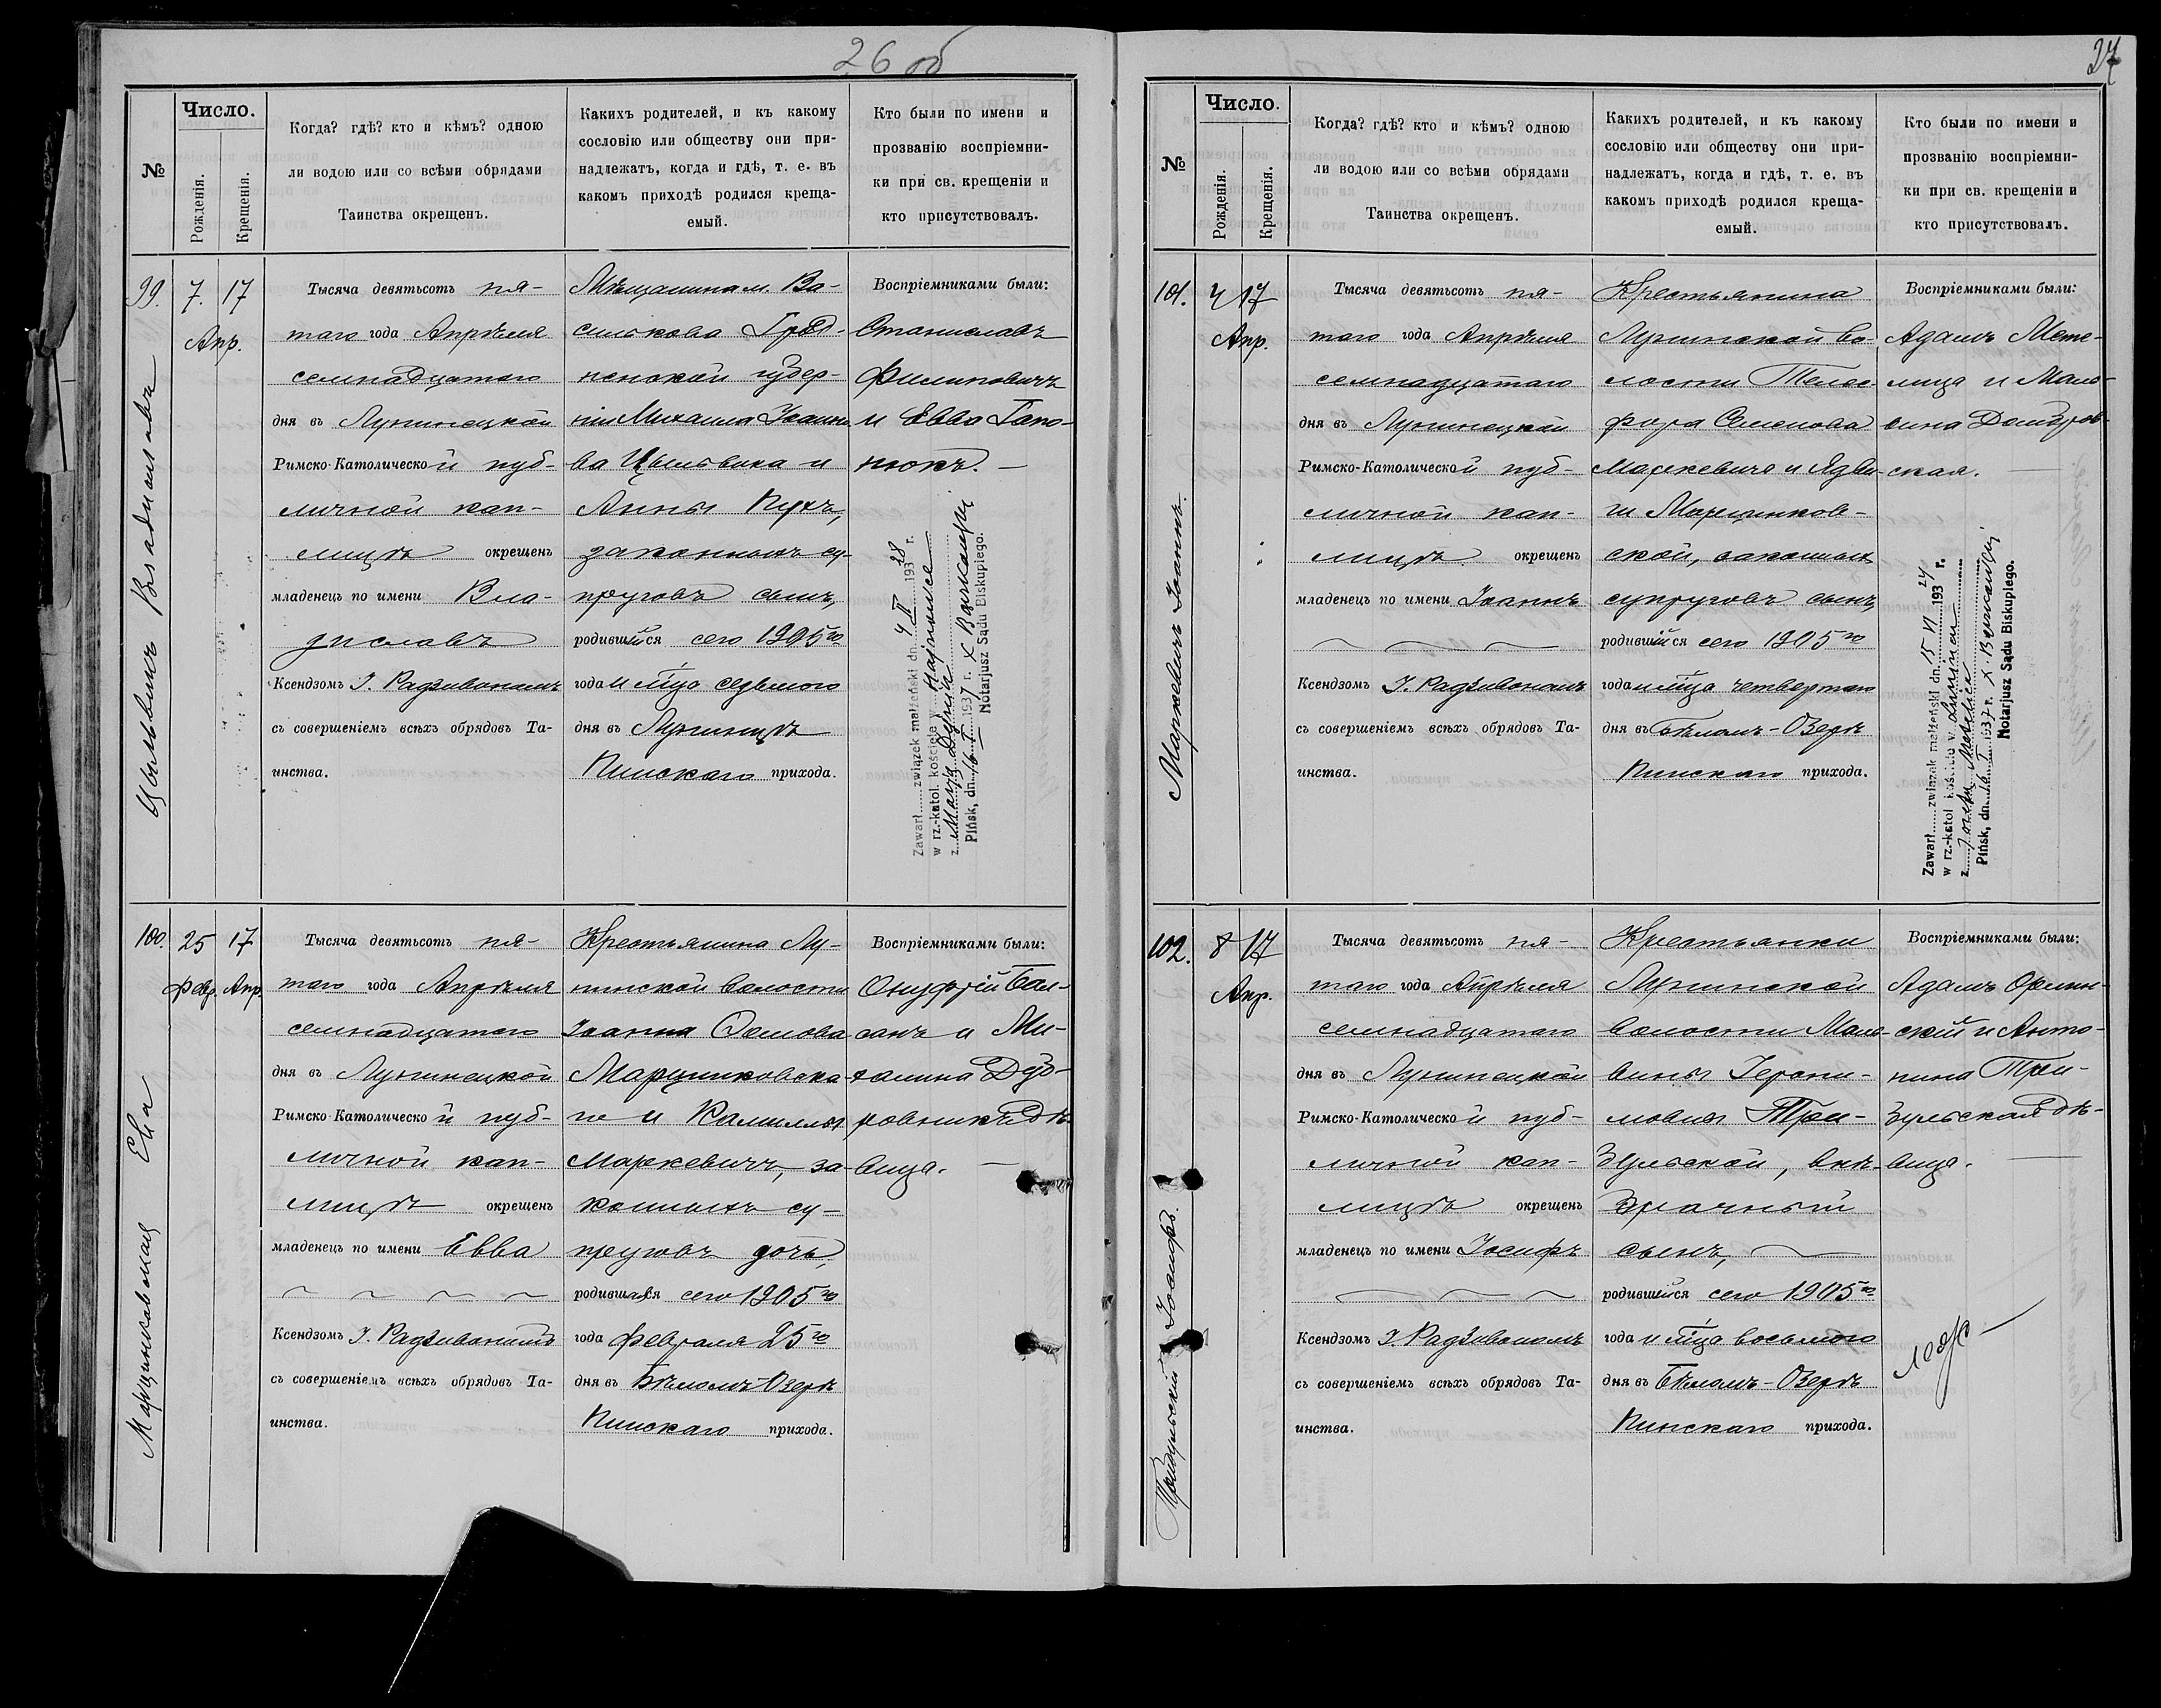 26 об
№
Число.
Рожденія.
Крещенія.
Когда? гдѣ? кто и кѣмъ? одною
ли водою или со всѣми обрядами
Таинства окрещенъ.
Какихъ родителей, и къ какому
сословію или обществу они при-
надлежатъ, когда и гдѣ, т. е. въ
какомъ приходѣ родился креща-
емый.
Кто были по имени и
прозванію воспріемни-
ки при св. крещеніи и
кто присутствовалъ.
99.
7. 17
Апр.
Владиславъ
Тысяча девятьсотъ пя-
таго года Апрѣля
семнадцатаго
дня въ Лунинецкой
Римско-Католической пуб-
личной кап-
лицѣ окрещенъ
младенецъ по имени Вла-
диславъ
Ксендзомъ І. Радзивономъ
съ совершеніемъ всѣхъ обрядовъ Та-
инства.
Мѣщанина м. Ва-
силькова Грод-
ненской губер-
ніи Михаила Іоанно-
ва и
Анны
законныхъ су-
пруговъ сынъ,
родившійся сего 1905го
года и м̃ца седьмого
дня въ Лунинцѣ
Пинскаго прихода.
Воспріемниками были:
Станиславъ
Филиповичъ
и Евва Гапо-
нюкъ. —
Zawarł związek małżeński dn. 4 II 1938 r.
w rz.-katol. kościele w Hajnówce
z Marją
Pińsk, dn. 16 I 1937 r. X.
Notarjusz Sądu Biskupiego.
100.
25 17
Февр. Апр.
Марцинковская Ева
Тысяча девятьсотъ пя-
таго года Апрѣля
семнадцатаго
дня въ Лунинецкой
Римско-Католической пуб-
личной кап-
лицѣ окрещенъ
младенецъ по имени Евва
Ксендзомъ І. Радзивономъ
съ совершеніемъ всѣхъ обрядовъ Та-
инства.
Крестьянина Лу-
нинской волости
Іоанна Осипова
Марцинковска-
го и Камиллы
Маркевичъ, за-
конныхъ су-
пруговъ дочь,
родившаяся сего 1905го
года Февраля 25го
дня въ Бѣломъ-Озерѣ
Пинскаго прихода.
Воспріемниками были:
Онуфрій Бал-
санъ и Ми-
халина Дуб-
ровникъ дѣ-
вица. —
27
№
Число.
Рожденія.
Крещенія.
Когда? гдѣ? кто и кѣмъ? одною
ли водою или со всѣми обрядами
Таинства окрещенъ.
Какихъ родителей, и къ какому
сословію или обществу они при-
надлежатъ, когда и гдѣ, т. е. въ
какомъ приходѣ родился креща-
емый.
Кто были по имени и
прозванію воспріемни-
ки при св. крещеніи и
кто присутствовалъ.
101.
4 17
Апр.
Маркевичъ Іоаннъ.
Тысяча девятьсотъ пя-
таго года Апрѣля
семнадцатаго
дня въ Лунинецкой
Римско-Католической пуб-
личной кап-
лицѣ окрещенъ
младенецъ по имени Іоаннъ
Ксендзомъ І. Радзивономъ
съ совершеніемъ всѣхъ обрядовъ Та-
инства.
Крестьянина
Лунинской во-
лости Телес-
фора Семенова
Маркевича и Ядви-
ги Марцинков-
ской, законныхъ
супруговъ сынъ,
родившійся сего 1905го
года и м̃ца четвертаго
дня въ Бѣломъ-Озерѣ
Пинскаго прихода.
Воспріемниками были:
Адамъ Мете-
лица и Маль-
вина Домбров-
ская.
Zawarł związek małżeński dn. 15 VI 193 24 r.
w rz.-katol. kościele w
z
Pińsk, dn. 16 I 1937 r. X.
Notarjusz Sądu Biskupiego.
102.
8 17
Апр.
Тысяча девятьсотъ пя-
таго года Апрѣля
семнадцатаго
дня въ Лунинецкой
Римско-Католической пуб-
личной кап-
лицѣ окрещенъ
младенецъ по имени Іосифъ
Ксендзомъ І. Радзивономъ
съ совершеніемъ всѣхъ обрядовъ Та-
инства.
Крестьянки
Лунинской
волости Маль-
вины Іерони-
мовны Трем-
бульской, внѣ-
брачный
сынъ,
родившійся сего 1905го
года и м̃ца восьмого
дня въ Бѣломъ-Озерѣ
Пинскаго прихода.
Воспріемниками были:
Адамъ
и Анто-
нина Трем-
бульская дѣ-
вица.